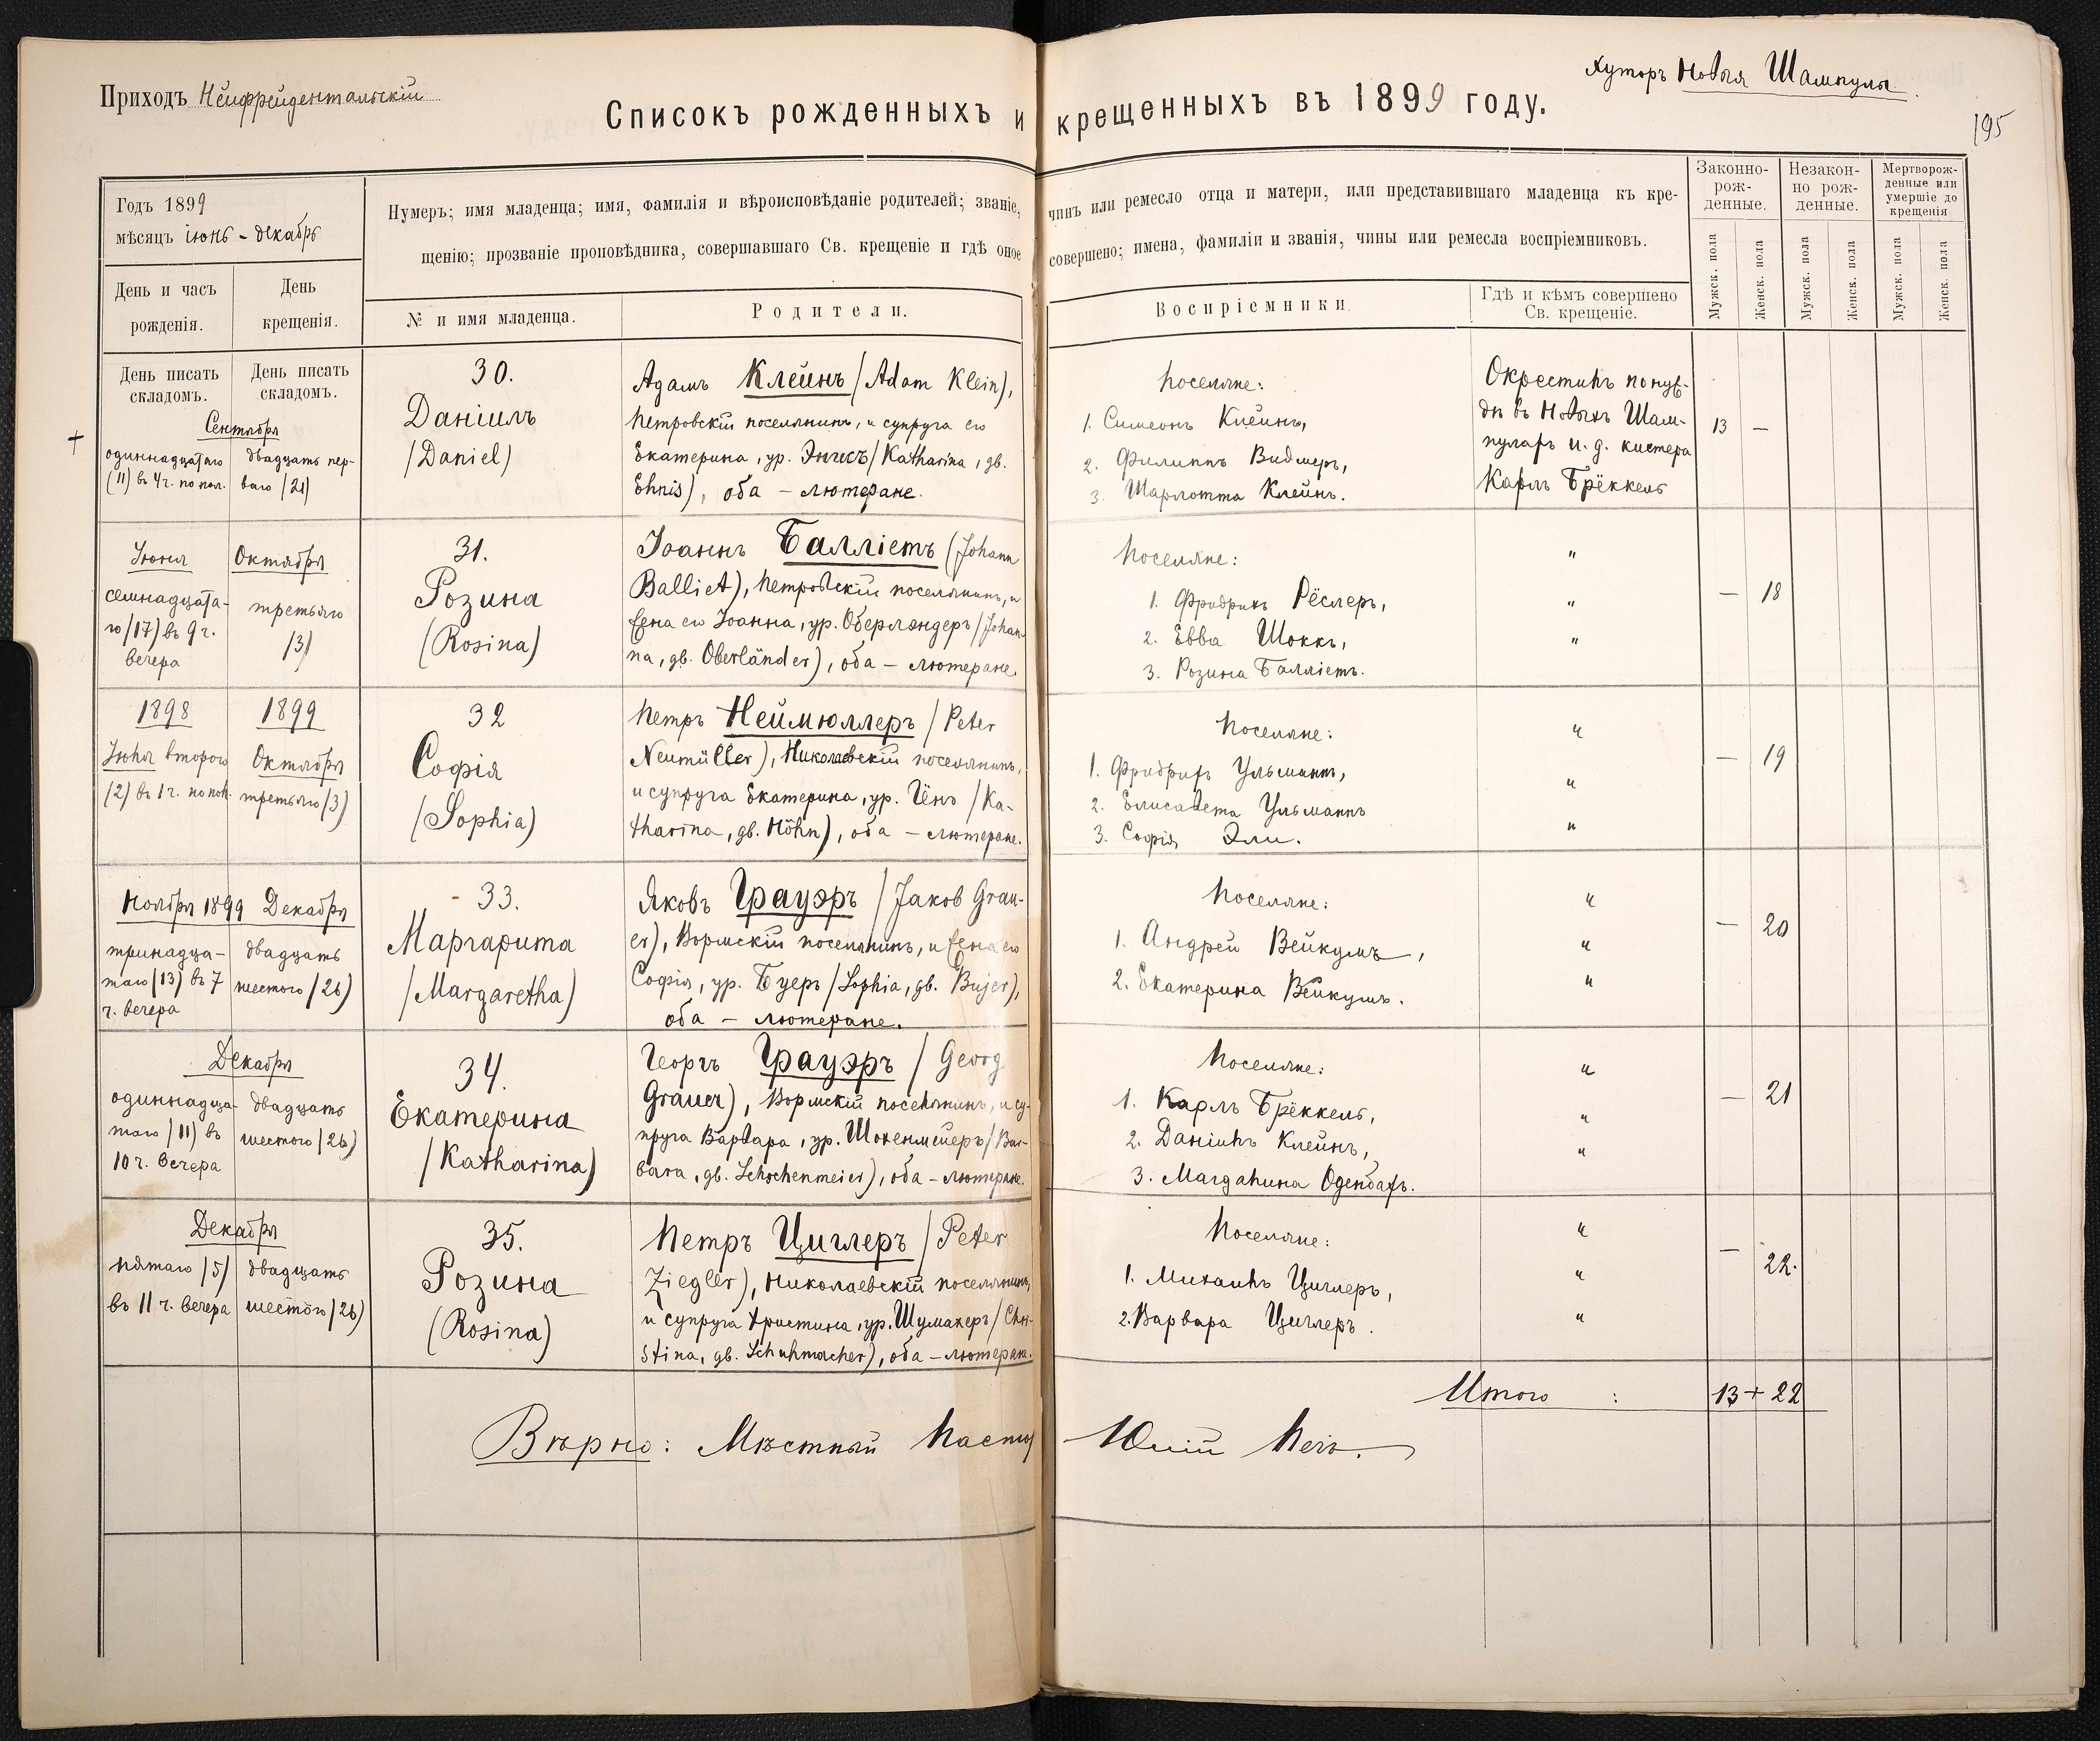 Приходъ Нейфрейдентальскій
Хуторъ Новыя Шампулы
195
Списокъ рожденныхъ и крещенныхъ въ 1899 году.
Годъ 1899
мѣсяцъ іюнь - декабрь
День и часъ рожденія.
День крещенія.
Нумеръ; имя младенца; имя, фамилія и вѣроисповѣданіе родителей; званіе, чинъ или ремесло отца и матери, или представившаго младенца къ кре-
щенію; прозваніе проповѣдника, совершавшаго Св. крещеніе и гдѣ оное совершено; имена, фамиліи и званія, чины или ремесла воспріемниковъ.
№ и имя младенца.
Родители.
Воспріемники.
Гдѣ и кѣмъ совершено
Св. крещеніе.
Законно-
рож-
денные.
Незакон-
но рож-
денные.
Мертворож-
денные или
умершіе до
крещенія
Мужск. пола
Женск. пола
Мужск. пола
Женск. пола
Мужск. пола
Женск. пола
День писать
складомъ.
День писать
складомъ.
+
Сентября
одиннадцатаго
(11) въ 4 ч. по пол.
двадцать пер-
ваго (21)
30.
Даніилъ
(Daniel)
Адамъ Клейнъ (Adam Klein),
Петровскій поселянинъ, и супруга его
Екатерина, ур. Энисъ (Katharina, gb.
Ehnis), оба - лютеране.
Поселяне:
1. Симеонъ Клейнъ,
2. Филиппъ Видмеръ,
3. Шарлотта Клейнъ.
Окрестилъ по нуж-
дѣ въ Новыхъ Шам-
пулахъ и. д. кистера
Карлъ Брёккель
13 —
Іюня
семнадцата-
го (17) въ 9 ч.
вечера
Октября
третьяго
(3)
31.
Розина
(Rosina)
Іоаннъ Балліетъ (Johann
Balliet), Петровскій поселянинъ, и
жена его Іоанна, ур. Оберлэндеръ (Johan-
na, gb. Oberländer), оба - лютеране.
Поселяне:
1. Фридрихъ Рёслеръ,
2. Евва Шоккъ,
3. Розина Балліетъ.
"
"
"
— 18
1898
Іюня второго
(2) въ 1 ч. по пол.
1899
Октября
третьяго (3)
32
Софія
(Sophia)
Петръ Неймюллеръ (Peter
Neumüller), Николаевскій поселянинъ,
и супруга Екатерина, ур. Гёнъ (Ka-
tharina, gb. Höhn), оба - лютеране.
Поселяне:
1. Фридрихъ Ульманнъ,
2. Елисавета Ульманнъ
3. Софія Эли.
"
"
"
— 19
Ноября 1899
тринадца-
таго (13) въ 7
ч. вечера
Декабря
двадцать
шестого (26)
33.
Маргарита
(Margaretha)
Яковъ Грауэръ (Jakob Grau-
er), Вормскій поселянинъ, и жена его
Софія, ур. Буеръ (Sophia, gb. Bujer),
оба - лютеране.
Поселяне:
1. Андрей Вейкумъ,
2. Екатерина Вейкумъ.
"
"
"
— 20
Декабря
одиннадца-
таго (11) въ
10 ч. вечера
двадцать
шестого (26)
34.
Екатерина
(Katharina)
Георгъ Грауэръ (Georg
Grauer), Вормскій поселянинъ, и су-
пруга Варвара, ур. Шохенмейеръ (Bar-
bara, gb. Schochenmeier), оба - лютеране.
Поселяне:
1. Карлъ Брёккель,
2. Даніилъ Клейнъ,
3. Магдалина Оденбахъ.
"
"
"
— 21
Декабря
пятаго (5)
въ 11 ч. вечера
двадцать
шестого (26)
35.
Розина
(Rosina)
Петръ Циглеръ (Peter
Ziegler), Николаевскій поселянинъ,
и супруга Христина, ур. Шумахеръ (Chri-
stina, gb. Schuhmacher), оба - лютеране.
Поселяне:
1. Михаилъ Циглеръ,
2. Варвара Циглеръ.
"
"
"
— 22.
Итого : 13 + 22
Вѣрно: Мѣстный Пастор Юлій Пегъ.